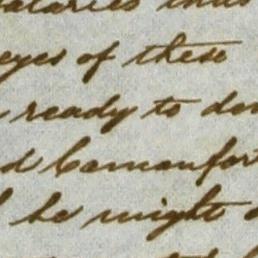 salaries thus
eyes of these
ready to den
d Camonfort
he might